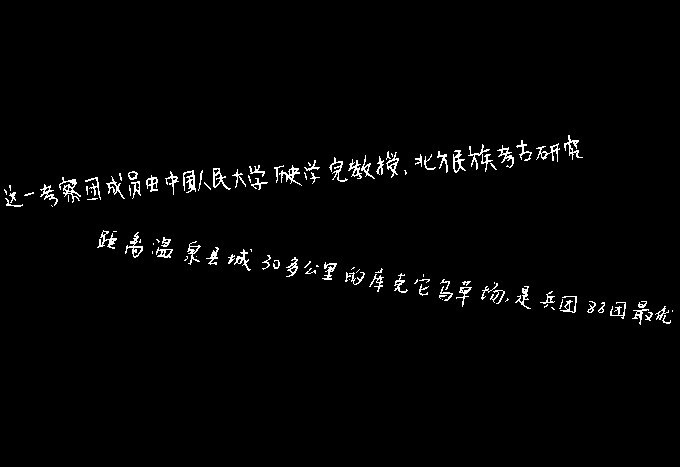 这一考察团成员由中国人民大学历史学院教授、北方民族考古研究
距离温泉县城30多公里的库克它乌草场,是兵团88团最优